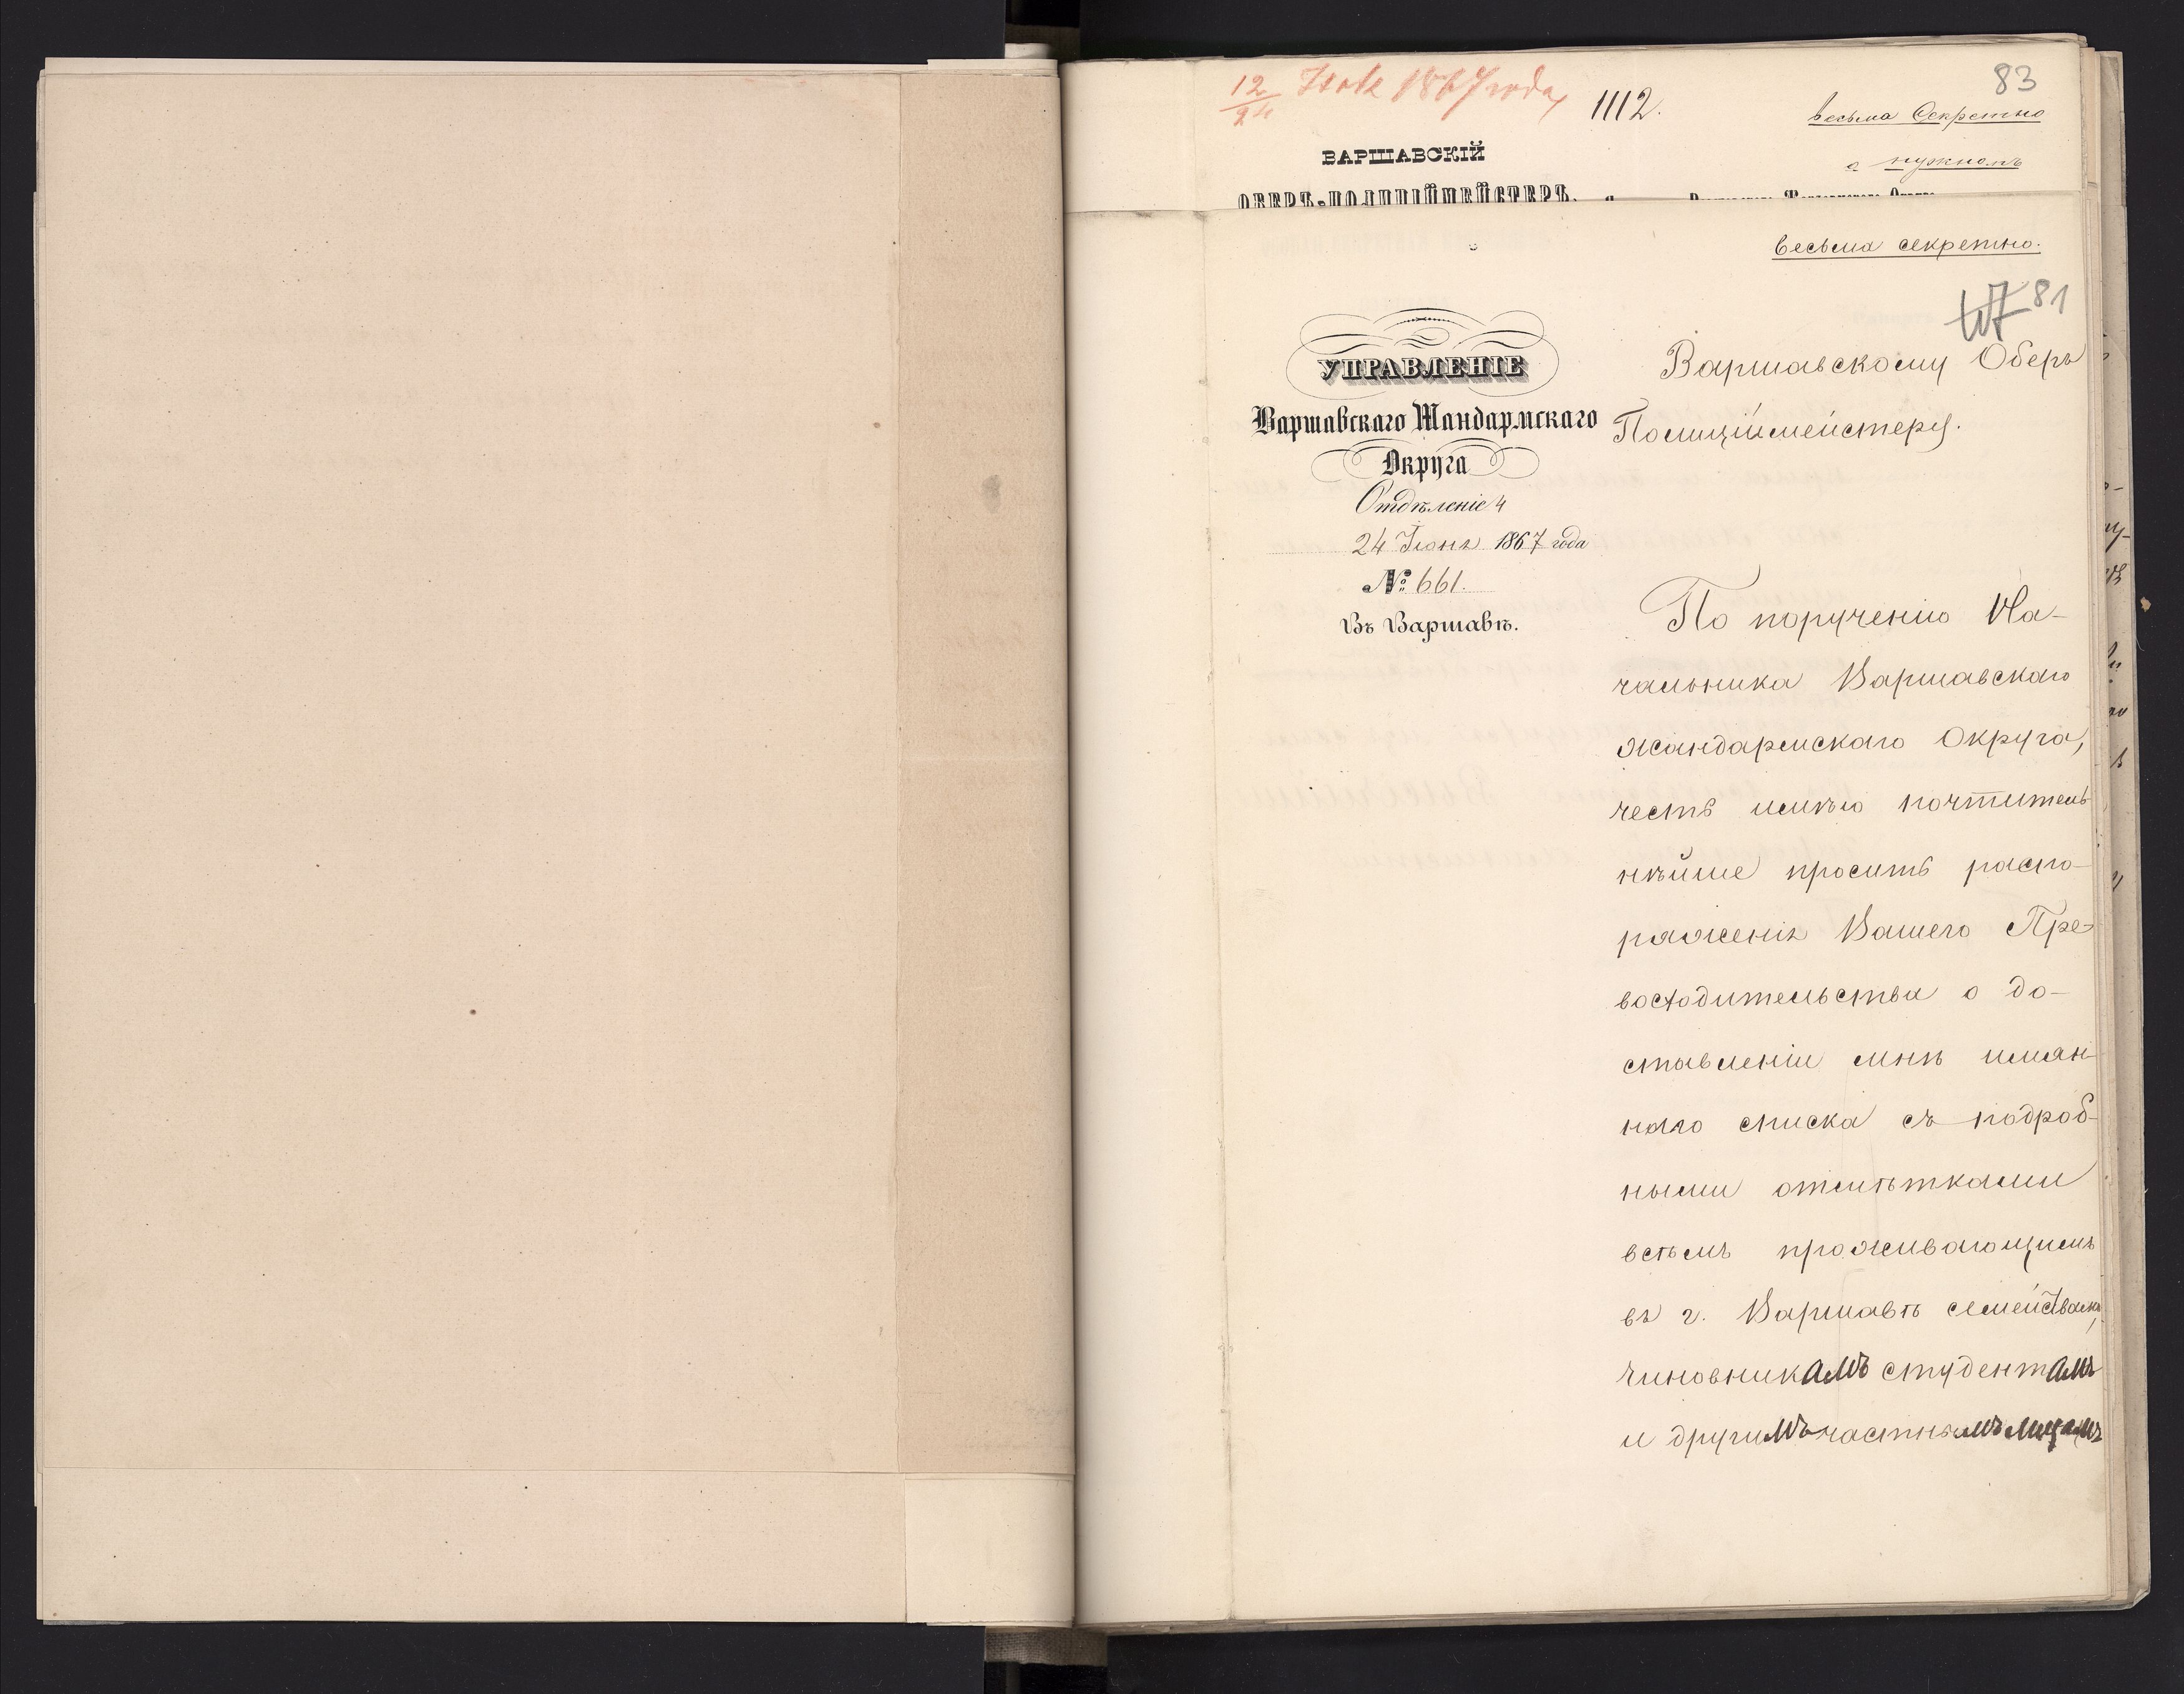 12/24 1867 года
1112.
83
весьма Секретно
о нужномъ
ВАРШАВСКІЙ
ОБЕРЪ-ПОЛИЦІЙМЕЙСТЕРЪ.
весьма секретно.
81
УПРАВЛЕНІЕ
Варшавскаго Жандармскаго
Округа
Отдѣленіе 4
24 Іюня 1867 года
№ 661.
Въ Варшавѣ.
Варшавскому Оберъ
Полиціймейстеру.
По порученію На-
чальника Варшавскаго
жандармскаго Округа,
честь имѣю почтитель-
нѣйше просить распо-
ряженія Вашего Пре-
восходительства о до-
ставленіи мнѣ имян-
наго списка съ подроб-
ными отмѣтками
всѣмъ проживающимъ
въ г. Варшавѣ семействамъ,
чиновникамъ студентамъ
и другимъ частнымъ лицамъ